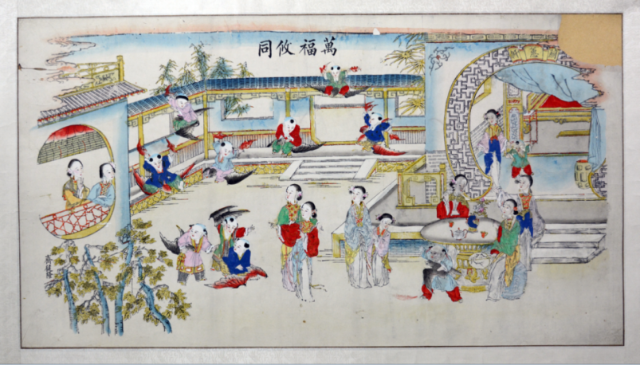 萬福攸同